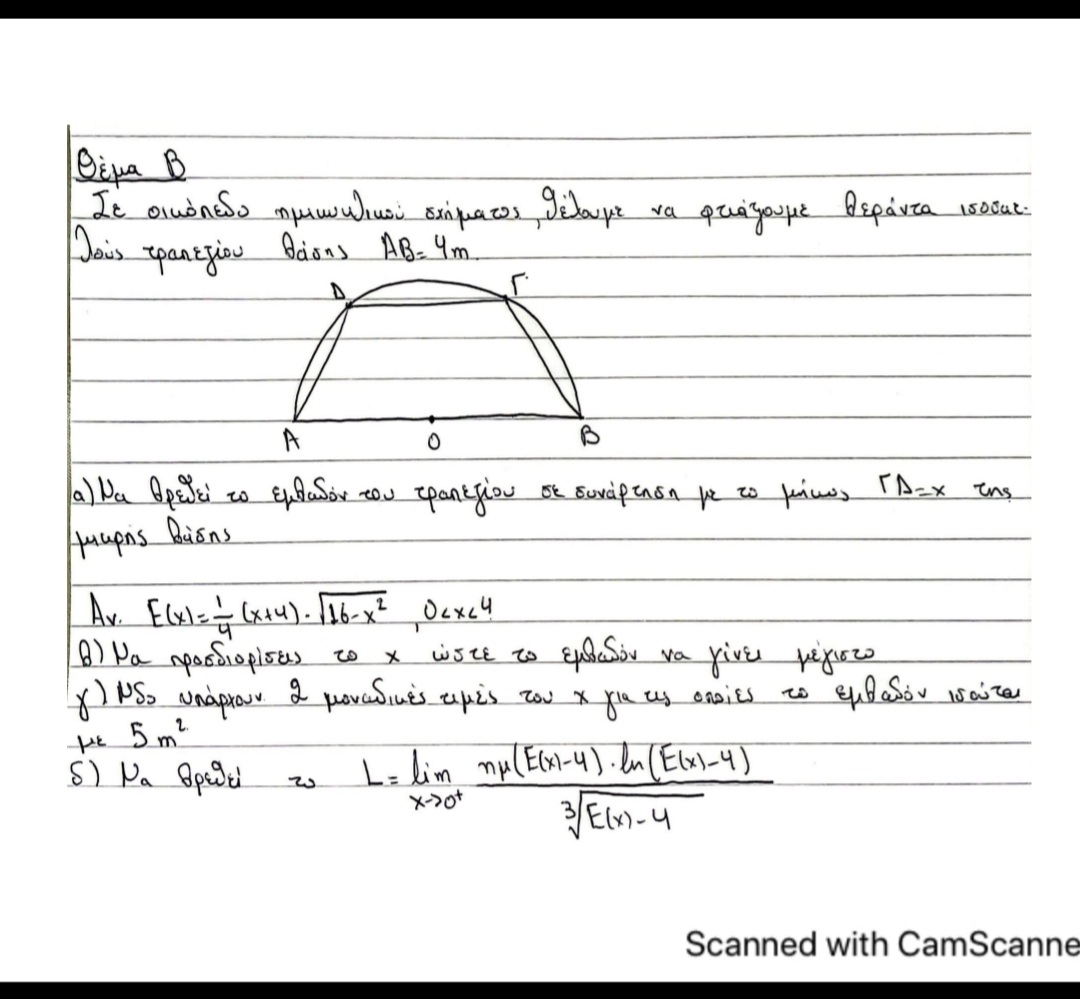 Θέμα Β
Σε οικόπεδο ημικυκλικού σχήματος, θέλουμε να φτιάξουμε βεράντα ισοσκε-
λούς τραπεζίου βάσης ΑΒ=4m.
Δ Γ
Α Ο Β
α) Να βρεθεί το εμβαδόν του τραπεζίου σε συνάρτηση με το μήκος ΓΔ=x της
μικρής βάσης
Αν. E(x)=1/4 (x+4)·√16-x², 0<x<4
β) Να προσδιορίσεις το x ώστε το εμβαδόν να γίνει μέγιστο
γ) ΝΔο υπάρχουν 2 μοναδικές τιμές του x για τις οποίες το εμβαδόν ισούται
με 5 m².
δ) Να βρεθεί το L= lim x->0⁺ ημ(E(x)-4)·ln(E(x)-4) / ∛E(x)-4
Scanned with CamScanne